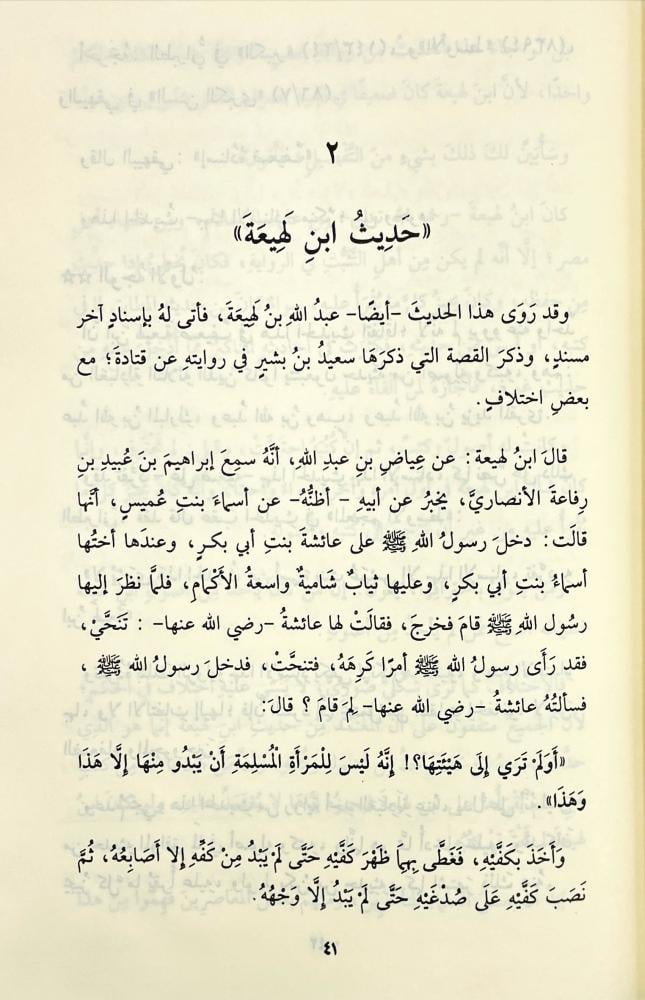 ٢
«حَدِيثُ ابنِ لَهِيعَةَ»
وقد رَوَى هذا الحديثَ -أيضًا- عبدُ اللهِ بنُ لَهِيعَةَ، فأتى لهُ بإسنادٍ آخر
مسندٍ، وذكرَ القصة التي ذكرَهَا سعيدُ بنُ بشيرٍ في روايتهِ عن قتادةَ؛ مع
بعضِ اختلافٍ.
قالَ ابنُ لهيعة: عن عِياضِ بنِ عبدِ اللهِ، أنَّهُ سمِعَ إبراهيمَ بنَ عُبيدِ بنِ
رِفاعةَ الأنصاريَّ، يخبرُ عن أبيهِ - أظنُّهُ- عن أسماءَ بنتِ عُميسٍ، أنَّها
قالَت: دخلَ رسولُ اللهِ ﷺ على عائشةَ بنتِ أبي بكرٍ، وعندَها أختُها
أسماءُ بنتِ أبي بكرٍ، وعليها ثيابٌ شاميةٌ واسعةُ الأَكْمَامِ، فلمَّا نظرَ إليها
رسُول اللهِ ﷺ قامَ فخرجَ، فقالَتْ لها عائشةُ -رضي الله عنها- : تَنَحَّيْ،
فقد رَأَى رسولُ الله ﷺ أمرًا كَرِهَهُ، فتنحَّتْ، فدخلَ رسولُ الله ﷺ ،
فسألتْهُ عائشةُ -رضي الله عنها- لِمَ قامَ ؟ قالَ:
«أَوَلَمْ تَرَي إِلَى هَيْئَتِهَا؟! إِنَّهُ لَيْسَ لِلْمَرْأَةِ الْمُسْلِمَةِ أَنْ يَبْدُو مِنْهَا إِلَّا هَذَا
وَهَذَا».
وَأَخَذَ بِكَفَّيْهِ، فَغَطَّى بِهِمَا ظَهْرَ كَفَّيْهِ حَتَّى لَمْ يَبْدُ مِنْ كَفِّهِ إِلا أَصَابِعُهُ، ثُمَّ
نَصَبَ كَفَّيْهِ عَلَى صُدْغَيْهِ حَتَّى لَمْ يَبْدُ إِلَّا وَجْهُهُ.
٤١